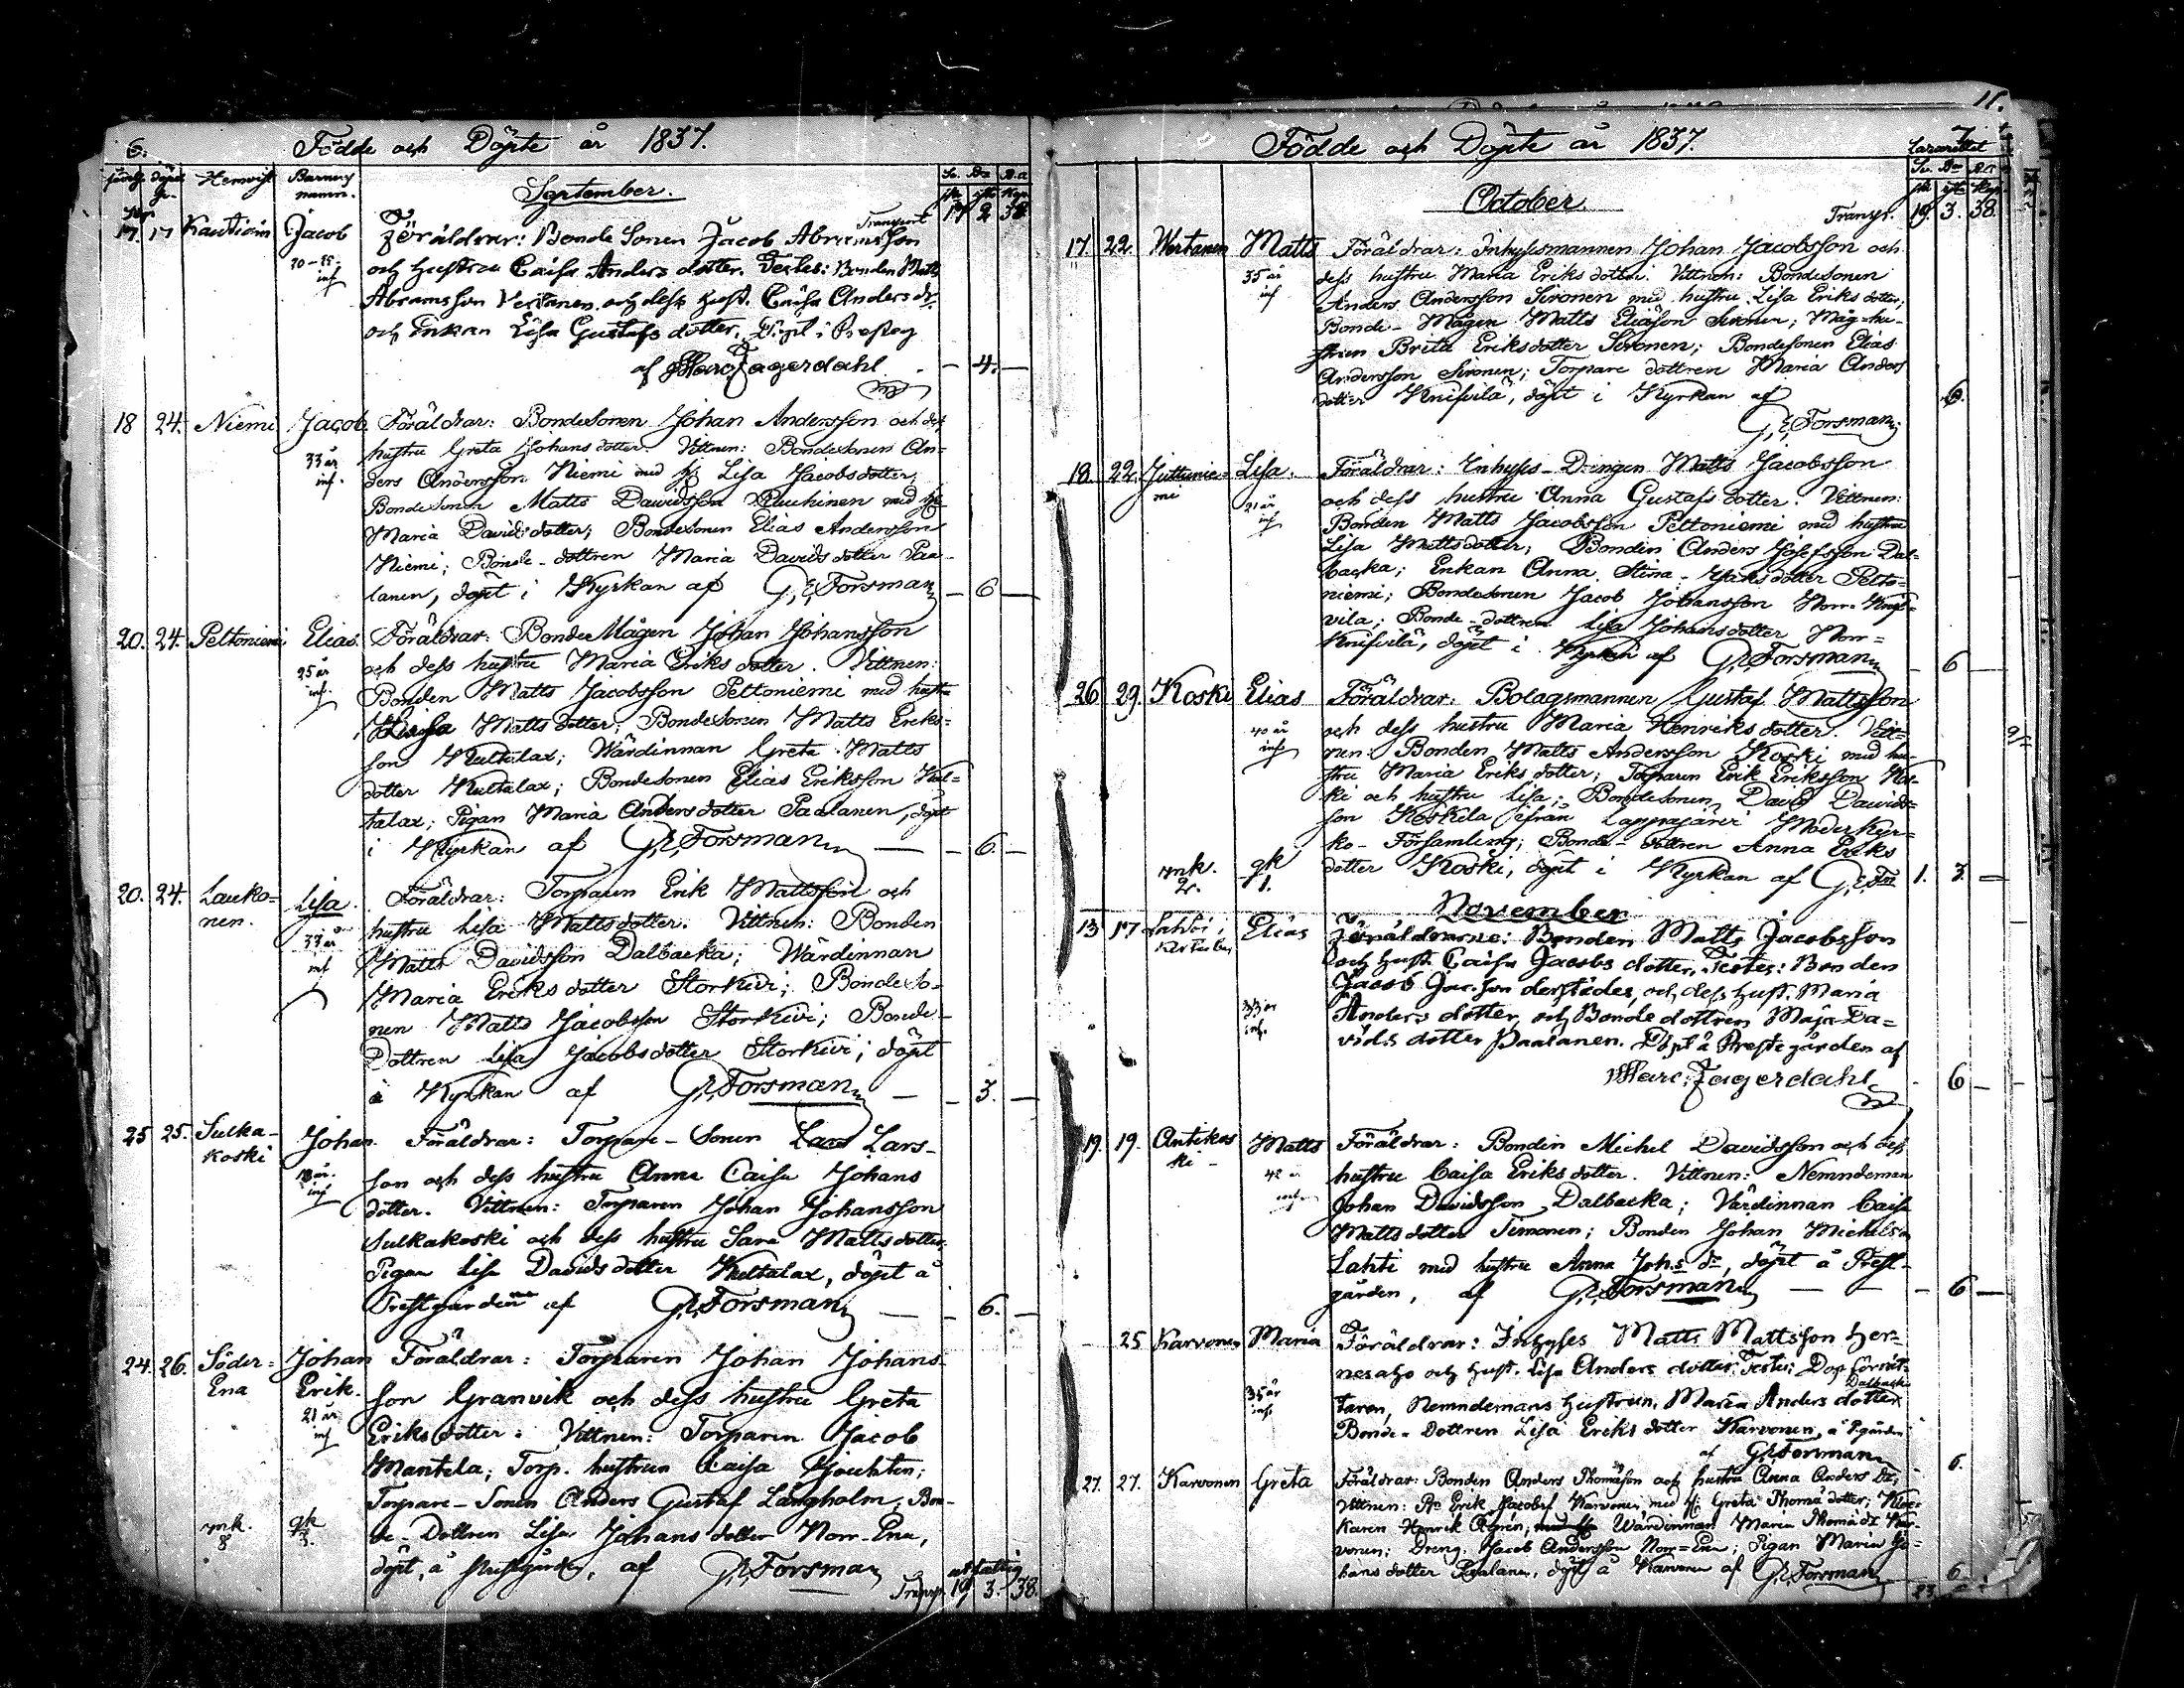 6.
Födde och Döpte år 1837.
Hemvist Barnens namn.
September.
Transport 17 2 38
17. 17 Kautiain Jacob Föräldrar: Bonde Sonen Jacob Abramsson
och hustru Caisa Anders dotter. Testes: Bonden Matts
Abramsson Vertanen och dess hust. Caisa Anders dr.
och Enkan Lisa Gustafs dotter, Döpt i Prestg
af Fagerdahl 4.
18 24. Niemi Jacob Föräldrar: Bondesonen Johan Andersson och dess
33 år hustru Greta Johans dotter. Vittnen: Bondesonen An-
inf. ders Andersson Niemi med hu Lisa Jacobsdotter,
Bondesonen Matts Davidsson med hu
Maria Davids dotter; Bondesonen Elias Andersson
Niemi; Bonde-dottren Maria Davids dotter Paa-
lanen, döpt i Kyrkan af G. E. Forsman 6
20. 24. Peltoniemi Elias. Föräldrar: BondeMågen Johan Johansson
25 år och dess hustru Maria Eriks dotter. Vittnen:
inf. Bonden Matts Jacobsson Peltoniemi med hustru
Matts dotter; Bondesonen Matts Eriks-
son Kultalax; Wärdinnan Greta Matts
dotter Kultalax; Bondesonen Elias Eriksson Kul-
talax; Pigan Maria Anders dotter Paalanen, döpt
i Kyrkan af G. E. Forsman 6.
20. 24. Lauko- Lisa. Föräldrar: Torparen Erik Mattsson och
nen. 33 år hustru Lisa Mattsdotter. Vittnen: Bonden
inf Matts Davidsson Dalbacka; Wärdinnan
Maria Eriks dotter Storkivi; Bondeso-
nen Matts Jacobsson Storkivi; Bonde-
Dottren Lisa Jacobs dotter Storkivi; döpt
i Kyrkan af G. E. Forsman 3.
25 25. Sulka- Johan. Föräldrar: Torpare-Sonen Lars Lars-
koski inf son och dess hustru Anna Caisa Johans
dotter. Vittnen: Torparen Johan Johansson
Sulkakoski och dess hustru Sara Mattsdotter,
Pigan Lisa Davids dotter Kultalax, döpt å
Prestgården af G. E. Forsman 6.
24. 26. Söder- Johan Föräldrar: Torparen Johan Johans-
Ena Erik. son Granvik och dess hustru Greta
21 år Eriks dotter. Vittnen: Torparen Jacob
inf Mantela; Torp. hustrun Caisa
Torpare-Sonen Anders Gustaf Långholm; Bon-
mk. 8 qk 3. de-Dottren Lisa Johans dotter Norr-Ena,
döpt å Prestgården, af G. E. Forsman
Transp. 19 3. 38.
11.
7.
Födde och Döpte år 1837.
Lazarettet
October
Transp. 19. 3. 38.
17. 22. Wertanen Matts Föräldrar: Inhysesmannen Johan Jacobsson och
35 år dess hustru Maria Eriks dotter. Vittnen: Bondesonen
inf Anders Andersson Sironen med hustru Lisa Eriks dotter;
Bonde-Mågen Matts Eliasson Sironen; Måg-hu-
strun Brita Eriksdotter Sironen; Bondesonen Elias
Andersson Sironen; Torpare dottren Maria Anders
dotter Knifvilä, döpt i Kyrkan af 6.
G. E. Forsman
18. 22. Lisa. Föräldrar: Inhyses-Drengen Matts Jacobsson
21 år och dess hustru Anna Gustafs dotter. Vittnen:
inf Bonden Matts Jacobsson Peltoniemi med hustru
Lisa Mattsdotter; Bonden Anders Josefsson Dal-
backa; Enkan Anna Stina dotter Pelto-
niemi; Bondesonen Jacob Johansson Norr-Knif-
vila; Bonde-dottren Lisa Johansdotter Norr-
Knifvilä, döpt i Kyrkan af G. E. Forsman 6
26 29. Koski Elias Föräldrar: Bolagsmannen Gustaf Mattsson
40 år och dess hustru Maria Henriks dotter. Vitt-
inf nen: Bonden Matts Andersson Koski med hu-
stru Maria Eriks dotter; Torparen Erik Eriksson Kos-
ki och hustru Lisa; Bondesonen David Davids-
son Koskela ifrån Lappajärvi Moderkyr-
ko-Församling; Bonde-dottren Anna Eriks
mk. 2. qk 1. dotter Koski, döpt i Kyrkan af G. E. Fn 1. 3.
November
13 17 Lahti Elias Föräldrarne: Bonden Matts Jacobsson
och hust. Caisa Jacobs dotter, Testes: Bonden
Jacob Jac.son derstädes, och dess hust. Maria
33 år Anders dotter, och Bonde dottren Maja Da-
inf. vids dotter Paalanen. Döpt å Prestegården af
Fagerdahl 6
19. 19. Antikos Matts Föräldrar: Bonden Michel Davidsson och dess
ki 42 år hustru Caisa Eriks dotter. Vittnen: Nemndeman
Johan Davidsson Dalbacka; Värdinnan Caisa
Matts dotter Timonen; Bonden Johan Michelson
Lahti med hustru Anna Joh.s dr, döpt å Prest-
gården, af G. E. Forsman 6
25 Karvonen Maria Föräldrar: Inhyses Matts Mattsson Her-
nesaho och hust. Lisa Anders dotter. Testes:
35 år Nemndemans hustrun, Maria Anders dotter Dalbacka
inf. Bonde-Dottren Lisa Eriks dotter Karvonen, å Pgården
af G. E. Forsman 6.
27. 27. Karvonen Greta Föräldrar: Bonden Anders Thomasson och hustru Anna Anders dr,
Vittnen: Erik Jacobss Karvonen med h: Greta Thomä dotter; Kloc-
karen Henrik Wärdinnan Maria Thomä dr Kar-
vonen; Dreng. Jacob Andersson Norr-Ena; Pigan Maria Jo-
hans dotter Paalanen, döpt å Karvonen af G. E. Forsman 6